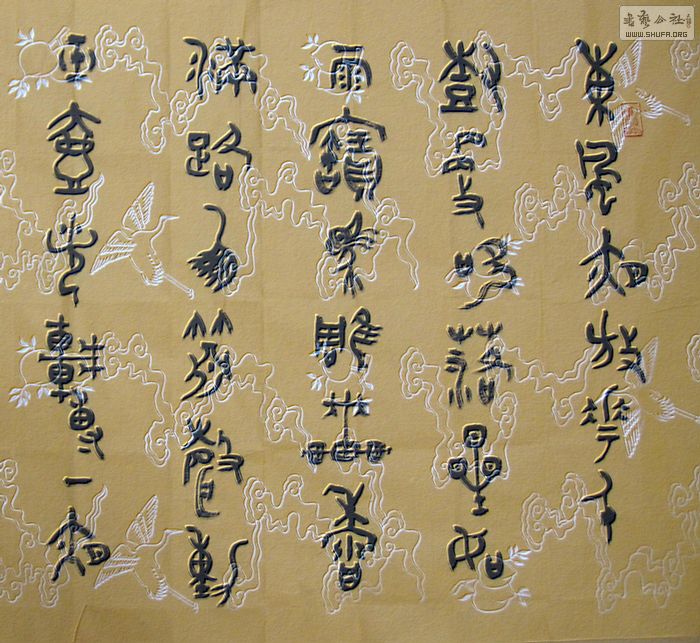 東風夜放花千
樹更吹落星如
雨寶馬雕車香
滿路鳳簫聲動
玉壺光轉一夜
書藝公社
WWW.SHUFA.ORG